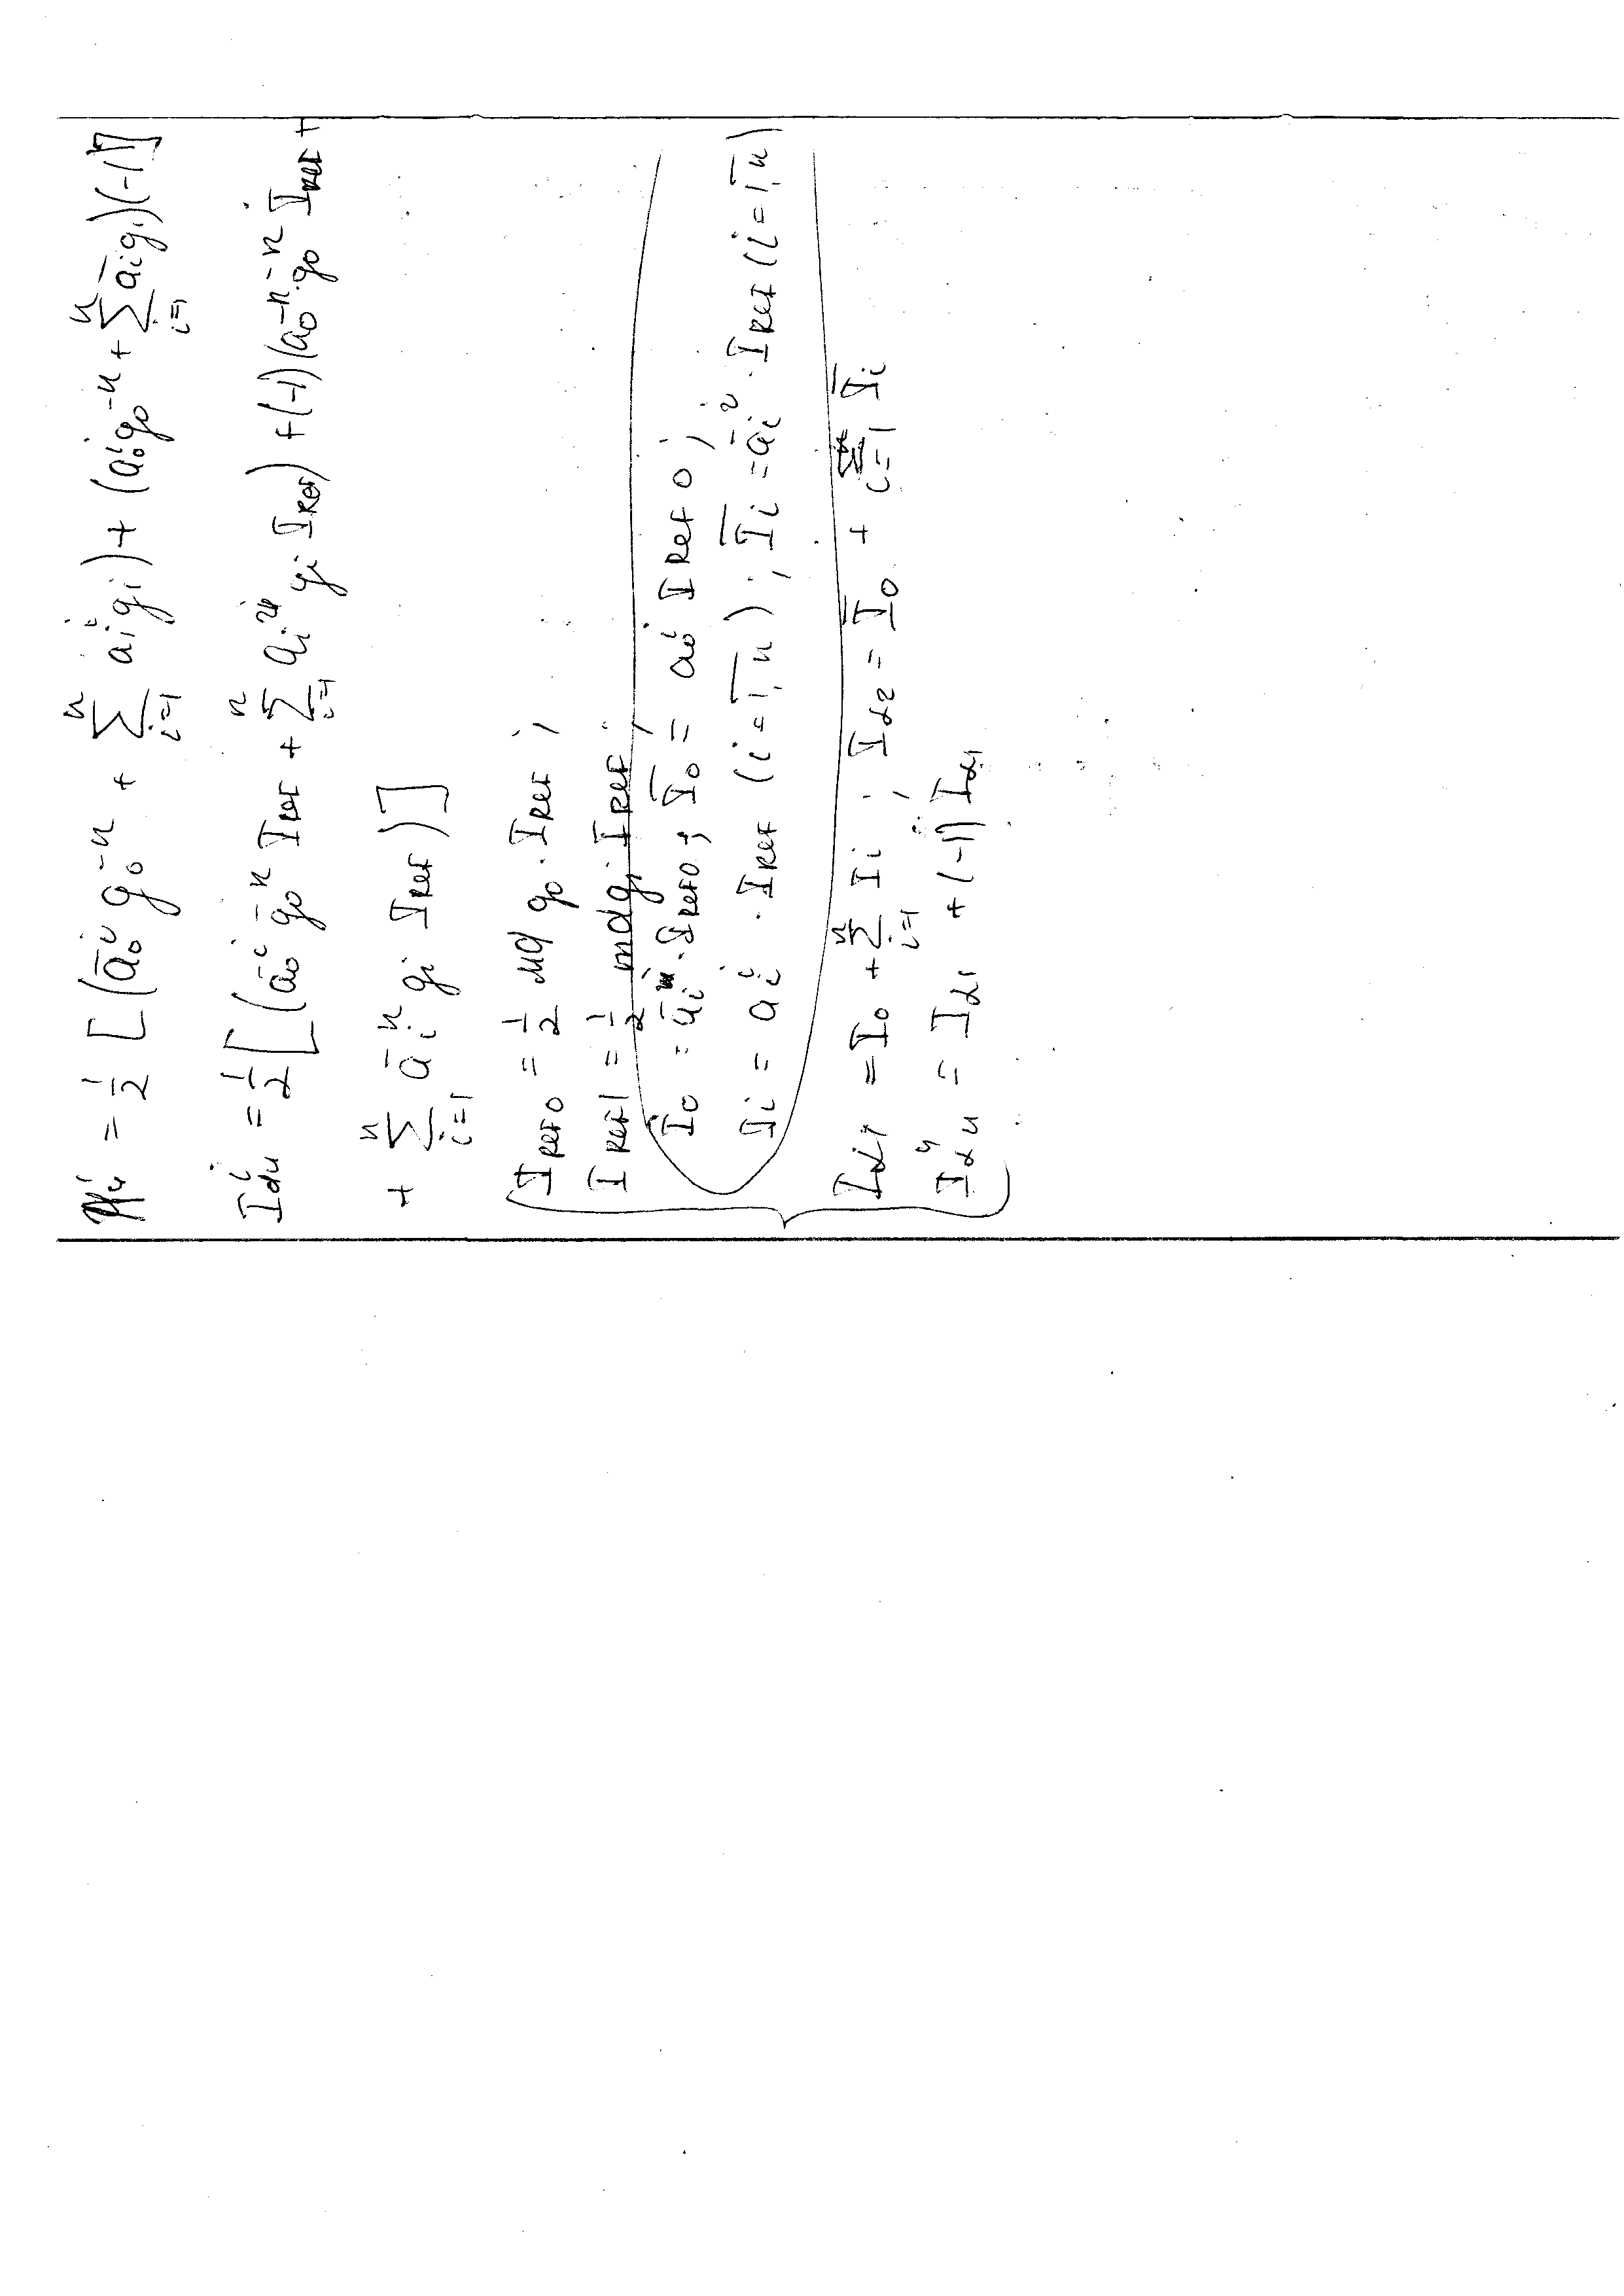 = 1/2 [(ā₀ⁱ g₀⁻ⁿ + Σᵢ₌₁ⁿ aᵢⁱ gᵢ) + (a₀ⁱ g₀⁻ⁿ + Σᵢ₌₁ⁿ āᵢ gᵢ)(-1)]
I = 1/2 [(ā₀ⁱ g₀⁻ⁿ I_REF + Σᵢ₌₁ⁿ aᵢ gᵢ I_REF) + (-1)(a₀⁻ⁿ g₀⁻ⁿ I_REF +
+ Σᵢ₌₁ⁿ āᵢⁿ gᵢ I_REF)]
I_REF0 = 1/2 md g₀ · I_REF ;
I_REF1 = 1/2 mdgᵢ I_REF ;
I₀ = āᵢ · I_REF0 ; Ī₀ = a₀ⁱ I_REF0 ;
Iᵢ = aᵢⁱ · I_REF (i = 1,n) ; Īᵢ = āᵢ · I_REF (i = 1,n)
I_α1 = I₀ + Σᵢ₌₁ⁿ Iᵢ ; I_α2 = Ī₀ + Σᵢ₌₁ⁿ Īᵢ
I_αu = I_α1 + (-1) I_α1